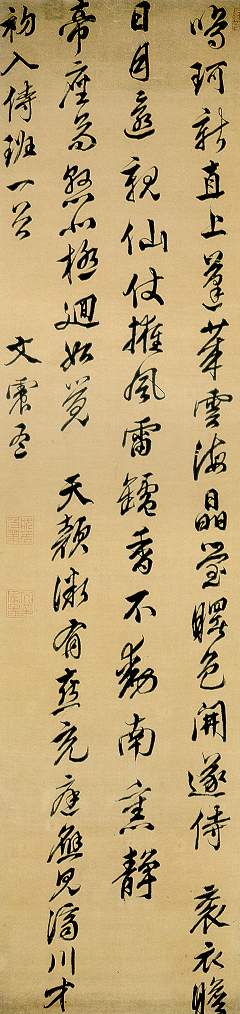 鳴珂新直上蓬萊雲海晶瑩曙色開遂侍袞衣瞻
日月還親仙仗擁風雷鑪香不動南熏靜
帝座高懸北極迴如覺天顏微有喜充庭應見濟川才
初入侍班一首
文震孟